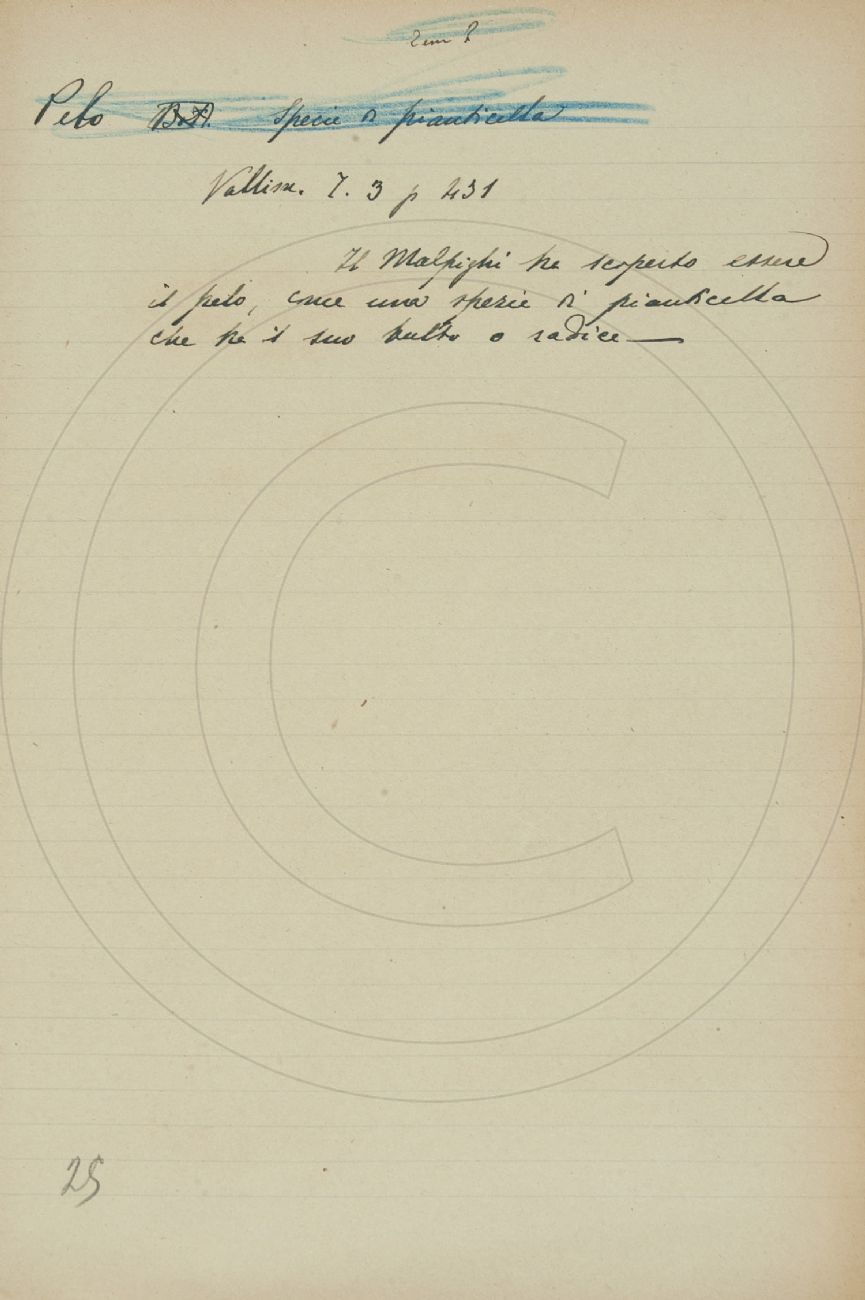 Pelo Bot. Specie di pianticella
Vallisn. T. 3 p 431
Il Malpighi ha scoperto essere
il pelo, come una spezie di pianticella
che ha il suo bulbo o radice —
25